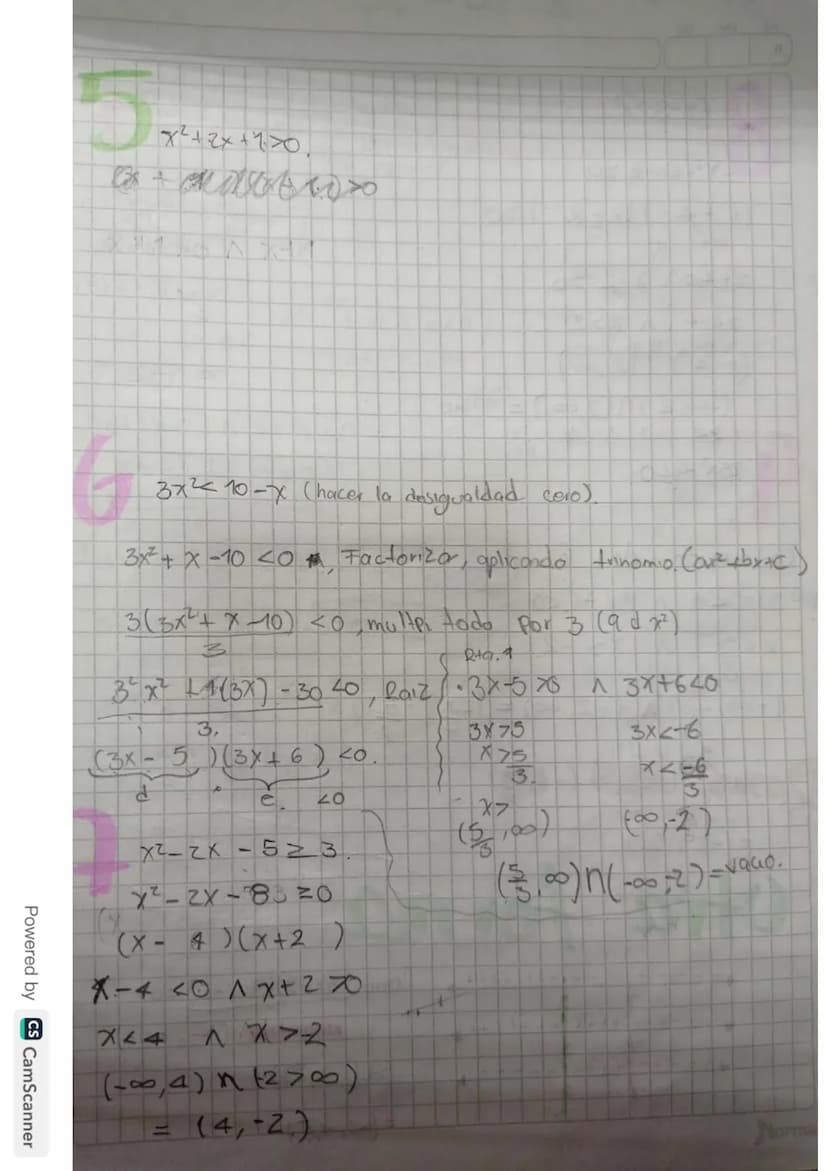 5
x²+2x+1>0.
>0
6
3x²<10-x (hacer la desigualdad cero).
3x²+x-10<0, Factorizar, aplicando trinomio (ax²+bx+c)
3(3x²+x-10)<0, multpi todo por 3 (a d x²)
3
3²x²+1(3x)-30<0, Raiz
3.
(3x-5)(3x+6)<0.
d . e. <0
Rta.1
·3x-5>0 ∧ 3x+6<0
3x>5 3x<-6
x>5/3. x<-6/3
x>
(5/3,∞) (-∞,-2)
(5/3,∞)∩(-∞,-2)=vacio.
7
x²-2x-5≥3.
x²-2x-8≥0
(x-4)(x+2)
x-4<0 ∧ x+2>0
x<4 ∧ x>-2
(-∞,4)∩(-2>∞)
=(4,-2)
Norma
Powered by CS CamScanner